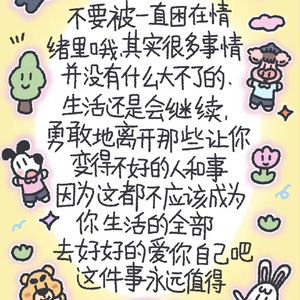 不要被一直困在情
绪里哦,其实很多事情
并没有什么大不了的、
生活还是会继续,
勇敢地离开那些让你
变得不好的人和事
因为这都不应该成为
你生活的全部
去好好的爱你自己吧
这件事永远值得